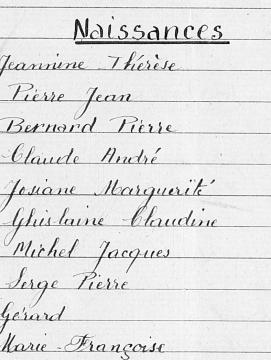 Naissances
Jeannine Thérèse
Pierre Jean
Bernard Pierre
Claude André
Josiane Marguerité
Ghislaine Claudine
Michel Jacques
Serge Pierre
Gérard
Marie-Françoise